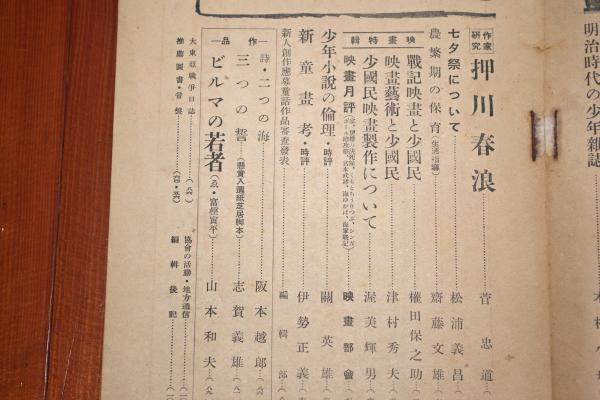 明治時代の少年雑誌
作家研究 押川春浪 菅忠道
七夕祭について 松浦義昌
農繁期の保育(生活指導) 齋藤文雄
映畫特輯
戰記映畫と少國民 權田保之助
映畫藝術と少國民 津村秀夫
少國民映畫製作について 渥美輝男
映畫月評 映畫部會
少年小說の倫理・時評 關英雄
新童畫考・時評 伊勢正義
新人創作應募童話作品審査發表 編輯部
作品
詩・二つの海 阪本越郎
三つの誓(懸賞入選紙芝居脚本) 志賀義雄
ビルマの若者(ゑ・富樫寅平) 山本和夫
大東亞戰爭日誌
協會の活動・地方通信
推薦圖書・音盤
編輯後記